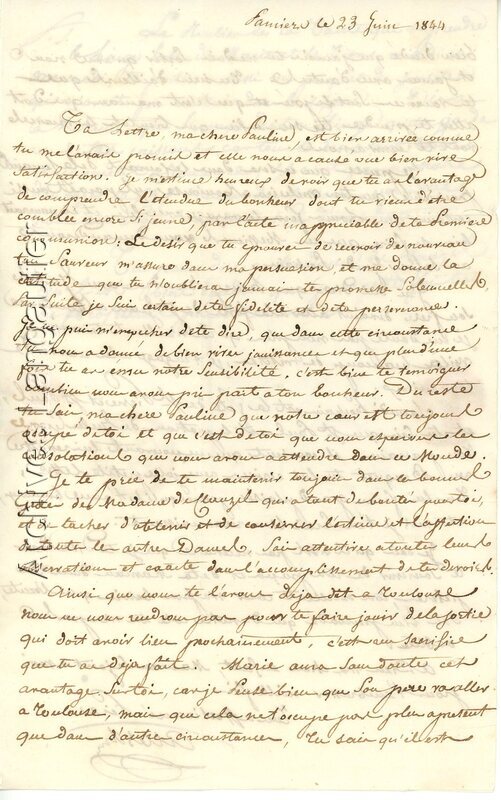 Pamiers le 23 Juin 1844
Ta Lettre, ma chere Pauline, est bien arrivée comme
tu me l'avais promis et elle nous a causé une bien vive
satisfaction. je m'estime heureux de voir que tu as l'avantage
de comprendre l'etendue du bonheur dont tu viens d'etre
comblée encore si jeune, par l'acte inappreciable de ta Premiere
communion: Le desir que tu eprouves de recevoir de nouveau
ton Sauveur m'assure dans ma persuasion, et me donne la
certitude que tu n'oublieras jamais tes promesses Solennelles
Par Suite je Suis certain de ta fidelité et de ta perseverance.
Je ne puis m'empecher de te dire, que dans cette circonstance
tu nous a donné de bien vives jouissances et que plus d'une
fois tu as emu notre Sensibilité. c'est bien te temoigner
combien nous avons pris part a ton bonheur. Du reste
tu Sais, ma chere Pauline que notre cœur est toujours
occupé de toi et que c'est de toi que nous esperons les
consolations que nous avons a attendre dans ce Monde.
Je te prie de te maintenir toujours dans les bonnes
de Madame qui a tant de bontés pour toi,
et de tacher d'obtenir et de conserver l'estime et l'affection
de toutes les autres Dames. Sois attentive a toutes leurs
observations et exacte dans l'accomplissement de tes devoirs.
Ainsi que nous te l'avons deja dit a Toulouse
nous ne nous rendrons pas pour te faire jouir de la sortie
qui doit avoir lieu prochainement, c'est un sacrifice
que tu as deja fait. Marie aura Sans doute cet
avantage Sur toi, car je Pense bien que Son pere va aller
a Toulouse, mais que cela ne t'occupe pas plus apresent
que dans d'autres circonstances, Tu sais qu'il est
Archives-Lastronques